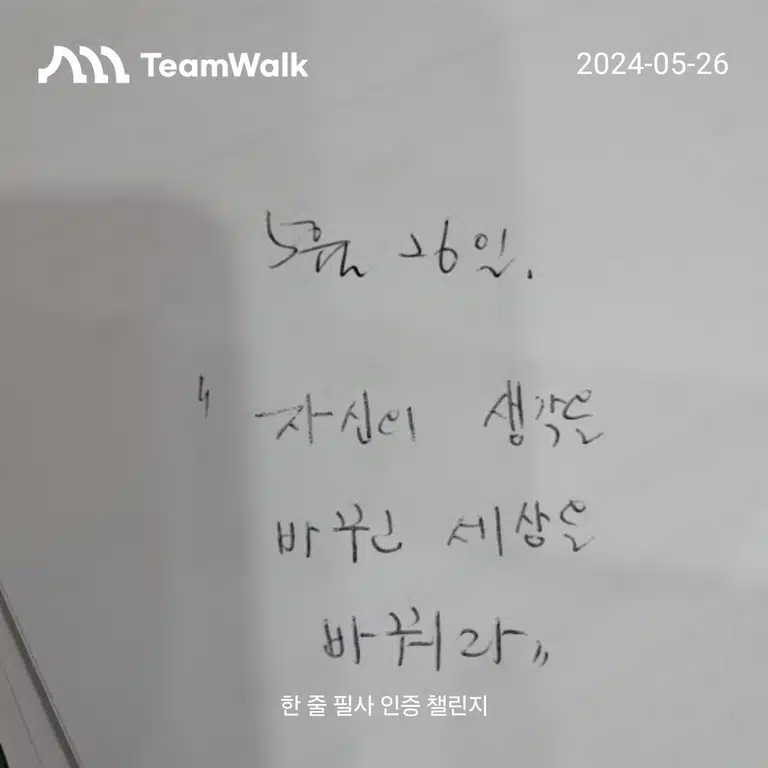 TeamWalk
2024-05-26
5월 26일.
"자신이 생각을
바꾼 세상을
바꿔라"
한 줄 필사 인증 챌린지